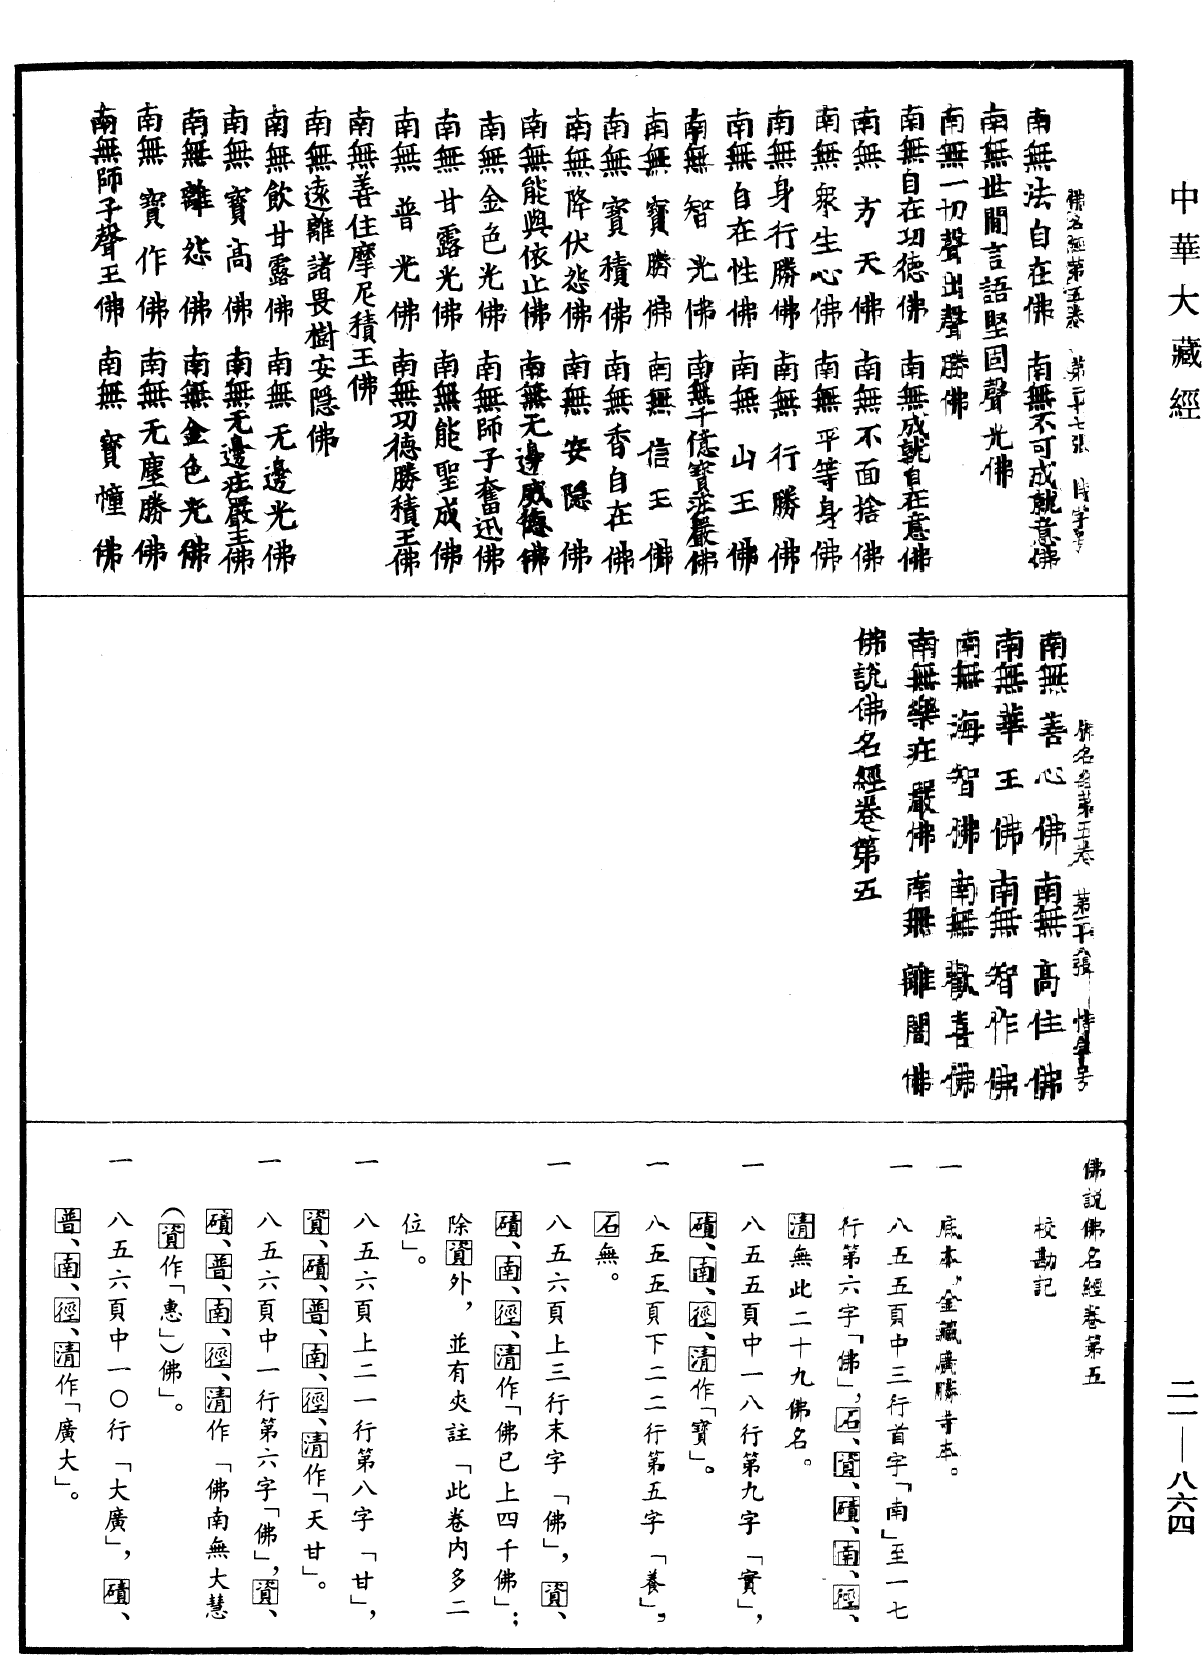 中華大藏經
佛名經第五卷　第二十七張
南無法自在佛　南無不可成就意佛
南無世間言語堅固聲光佛
南無一切聲出聲勝佛
南無自在功德佛　南無成就自在意佛
南無方天佛　南無不面捨佛
南無衆生心佛　南無平等身佛
南無身行勝佛　南無行勝佛
南無自在性佛　南無山王佛
南無智光佛　南無千億寶莊嚴佛
南無寶勝佛　南無信王佛
南無寶積佛　南無香自在佛
南無降伏怨佛　南無安隱佛
南無能與依止佛　南無无邊威德佛
南無金色光佛　南無師子奮迅佛
南無甘露光佛　南無能聖成佛
南無普光佛　南無功德勝積王佛
南無善住摩尼積王佛
南無遠離諸畏樹安隱佛
南無飲甘露佛　南無无邊光佛
南無寶高佛　南無无邊莊嚴王佛
南無離怨佛　南無金色光佛
南無寶作佛　南無无塵勝佛
南無師子聲王佛　南無寶幢佛
佛名經第五卷　第二十八張　情字号
南無善心佛　南無高住佛
南無華王佛　南無智作佛
南無海智佛　南無歡喜佛
南無樂莊嚴佛　南無離闇佛
佛說佛名經卷第五
佛說佛名經卷第五
校勘記
一　底本，金藏廣勝寺本。
一　八五五頁中三行首字「南」至一七
行第六字「佛」，石、資、磧、南、徑、
清無此二十九佛名。
一　八五五頁中一八行第九字「實」，
磧、南、徑、清作「寶」。
一　八五五頁下二二行第五字「養」，
石無。
一　八五六頁上三行末字「佛」，資、
磧、南、徑、清作「佛已上四千佛」；
除資外，並有夾註「此卷内多二
位」。
一　八五六頁上二一行第八字「甘」，
資、磧、普、南、徑、清作「天甘」。
一　八五六頁中一行第六字「佛」，資、
磧、普、南、徑、清作「佛南無大慧
（資作「惠」）佛」。
一　八五六頁中一〇行「大廣」，磧、
普、南、徑、清作「廣大」。
二一—八六四